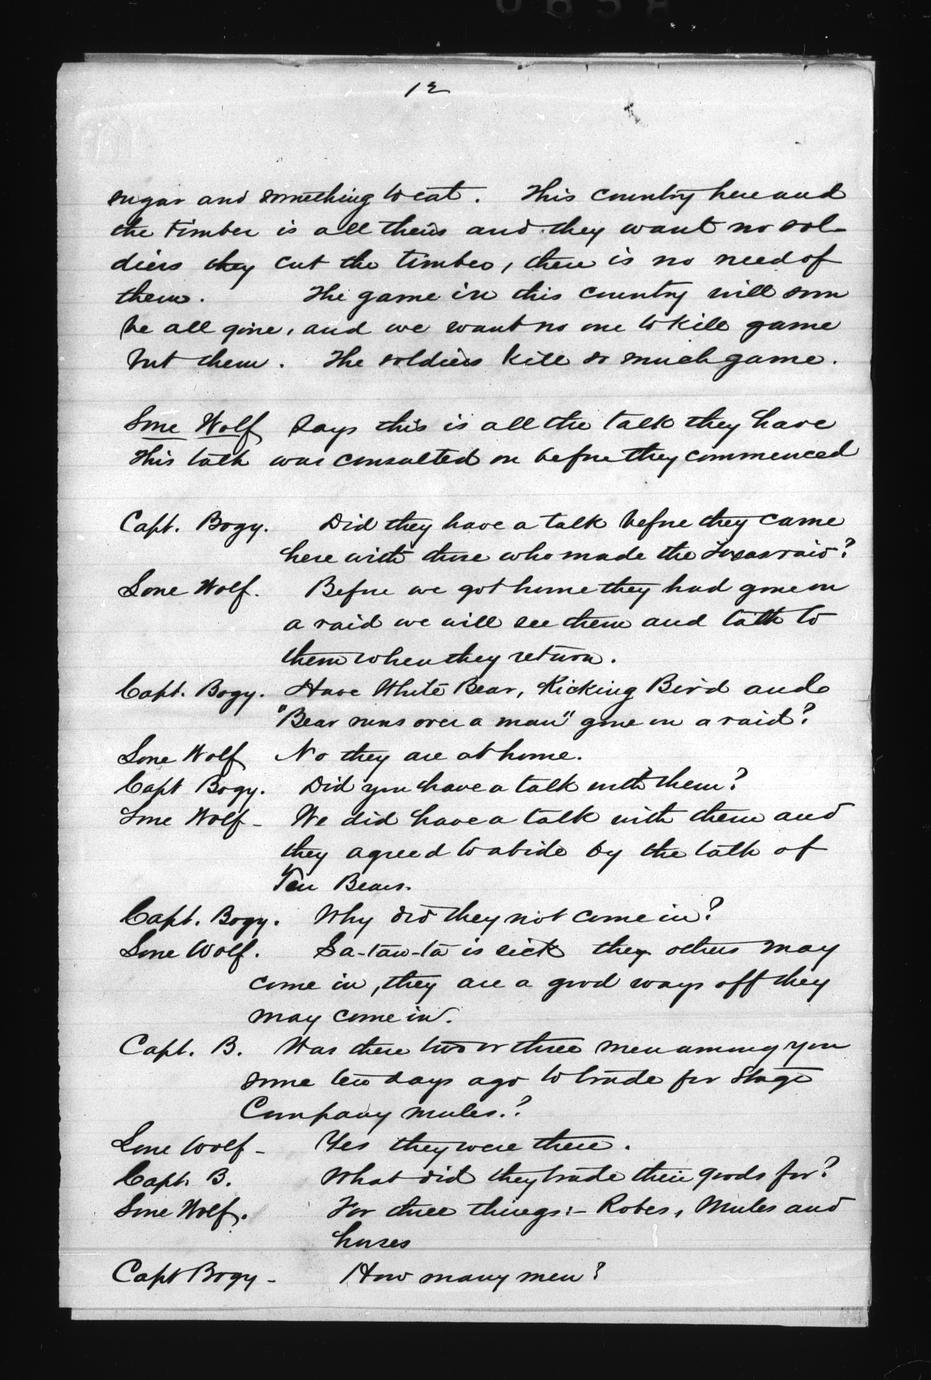 12
sugar and something to eat. This country here and
the timber is all theirs and they want no sol-
diers they cut the timber, there is no need of
them. The game in this country will soon
be all gone, and we want no one to kill game
but them. The soldiers kill so much game.
Lone Wolf Says this is all the talk they have
This talk was consulted on before they commenced
Capt. Bogy. Did they have a talk before they came
here with those who made the Texas raid?
Lone Wolf. Before we got home they had gone on
a raid we will see them and talk to
them when they return.
Capt. Bogy. Have White Bear, Kicking Bird and
"Bear runs over a man" gone on a raid?
Lone Wolf No they are at home.
Capt Bogy. Did you have a talk with them?
Lone Wolf - We did have a talk with them and
they agreed to abide by the talk of
Ten Bears.
Capt. Bogy. Why did they not come in?
Lone Wolf. Sa-tan-ta is sick they others may
come in, they are a good ways off they
may come in.
Capt. B. Was there two or three men among you
some ten days ago to trade for Stage
Company mules.?
Lone Wolf - Yes they were there.
Capt. B. What did they trade their goods for?
Lone Wolf. For three things:- Robes, Mules and
horses
Capt Bogy - How many men?